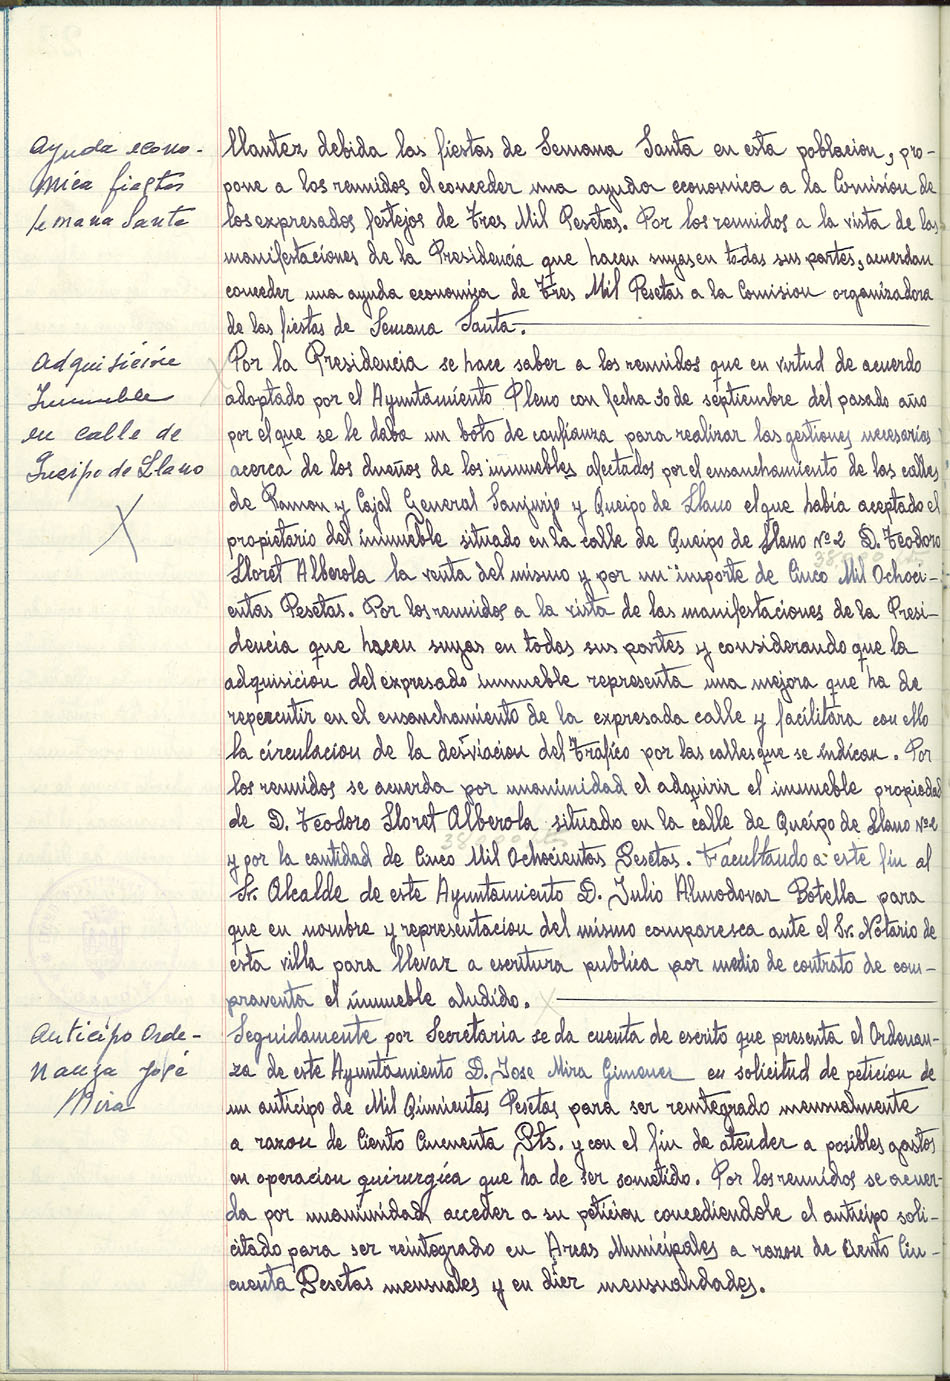 Ayuda econo-
mica fiestas
Semana Santa
llantez debida las fiestas de Semana Santa en esta poblacion, pro-
pone a los reunidos el conceder una ayuda economica a la Comisión de
los expresados festejos de Tres Mil Pesetas. Por los reunidos a la vista de las
manifestaciones de la Presidencia que hacen suyas en todas sus partes, acuerdan
conceder una ayuda economica de Tres Mil Pesetas a la Comision organizadora
de las fiestas de Semana Santa.
Adquisición
Inmueble
en calle de
Queipo de Llano
Por la Presidencia se hace saber a los reunidos que en virtud de acuerdo
adoptado por el Ayuntamiento Pleno con fecha 30 de septiembre del pasado año
por el que se le daba un boto de confianza para realizar las gestiones necesarias
acerca de los dueños de los inmuebles afectados por el ensanchamiento de las calles
de Ramon y Cajal General Sanjurjo y Queipo de Llano el que había aceptado el
propietario del inmueble situado en la calle de Queipo de Llano Nº 2 D. Teodoro
38.000 pts
Lloret Alberola la venta del mismo y por un importe de Cinco Mil Ochoci-
entas Pesetas. Por los reunidos a la vista de las manifestaciones de la Presi-
dencia que hacen suyas en todas sus partes y considerando que la
adquisicion del expresado inmueble representa una mejora que ha de
repercutir en el ensanchamiento de la expresada calle y facilitara con ello
la circulacion de la desviacion del Trafico por las calles que se indican. Por
los reunidos se acuerda por unanimidad el adquirir el inmueble propiedad
de D. Teodoro Lloret Alberola situado en la calle de Queipo de Llano Nº 2
38.000 pts
y por la cantidad de Cinco Mil Ochocientas Pesetas. Facultando a este fin al
Sr. Alcalde de este Ayuntamiento D. Julio Almodovar Botella para
que en nombre y representacion del mismo comparesca ante el Sr. Notario de
esta villa para llevar a escritura publica por medio de contrato de com-
praventa el inmueble aludido.
Anticipo Orde-
nanza José
Mira
Seguidamente por Secretaria se da cuenta de escrito que presenta el Ordenan-
za de este Ayuntamiento D. Jose Mira Gimenez en solicitud de peticion de
un anticipo de Mil Quinientas Pesetas para ser reintegrado mensualmente
a razon de Ciento Cincuenta Pts. y con el fin de atender a posibles gastos
en operacion quirurgica que ha de ser sometido. Por los reunidos se acuer-
da por unanimidad acceder a su peticion concediendole el anticipo soli-
citado para ser reintegrado en Arcas Municipales a razon de Ciento Cin-
cuenta Pesetas mensuales y en diez mensualidades.